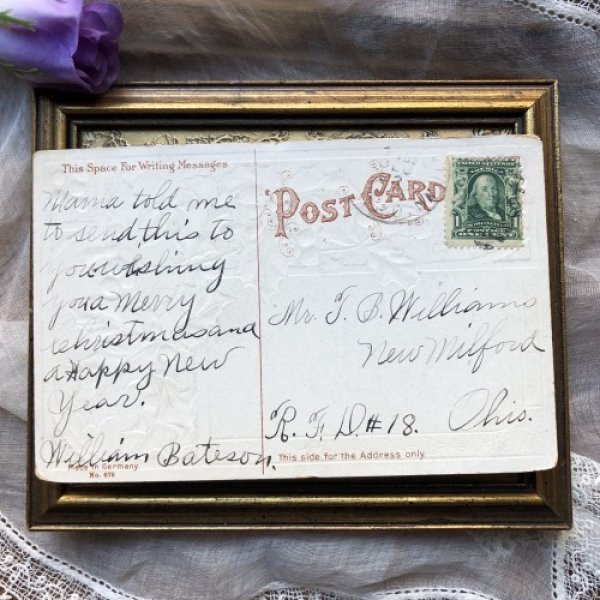 This Space For Writing Messages
Mama told me
to send this to
you wishing
you a Merry
Christmas and
a Happy New
Year.
William Bateson.
Made in Germany
No. 679
POST CARD
Mr. T. B. Williams
New Milford
R. F. D. # 18. Ohio.
This side for the Address only.